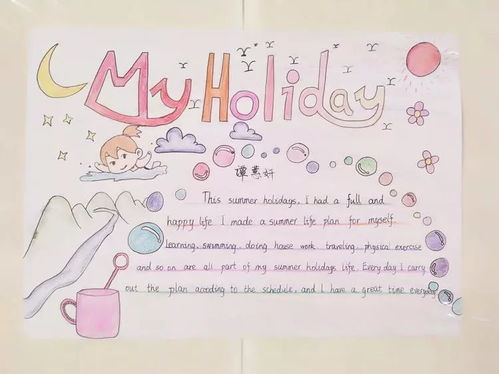 My Holiday
谭慧妍
This summer holidays, I had a full and
happy life I made a summer life plan for myself.
learning, swimming, doing house work, traveling, physical exercise
and so on are all part of my summer holidays life. Every day I carry
out the plan acording to the schedule, and I have a great time everyday